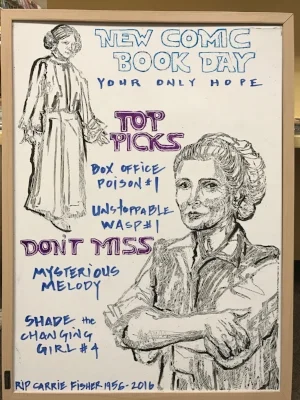 NEW COMIC
BOOK DAY
YOUR ONLY HOPE
TOP
PICKS
BOX OFFICE
POISON #1
UNSTOPPABLE
WASP #1
DONT MISS
MYSTERIOUS
MELODY
SHADE the
CHANGING
GIRL #4
RIP CARRIE FISHER 1956-2016